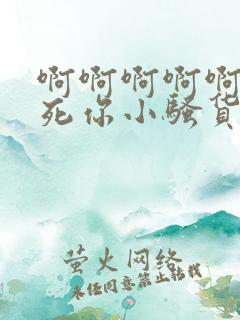 啊啊啊啊啊
死你小骚货
萤火网络
未经同意禁止转载